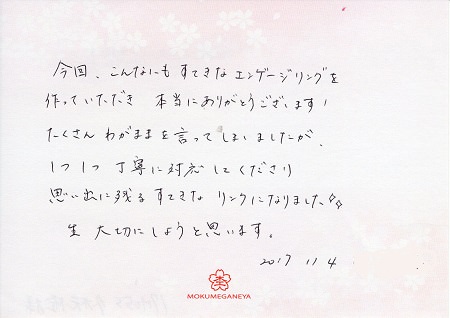 今回、こんなにもすてきなエンゲージリングを
作っていただき 本当にありがとうございます!
たくさんわがままを言ってしまいましたが、
1つ1つ丁寧に対応してくださり
思い出に残るすてきなリングになりました
生 大切にしようと思います。
2017 11 4
MOKUMEGANEYA